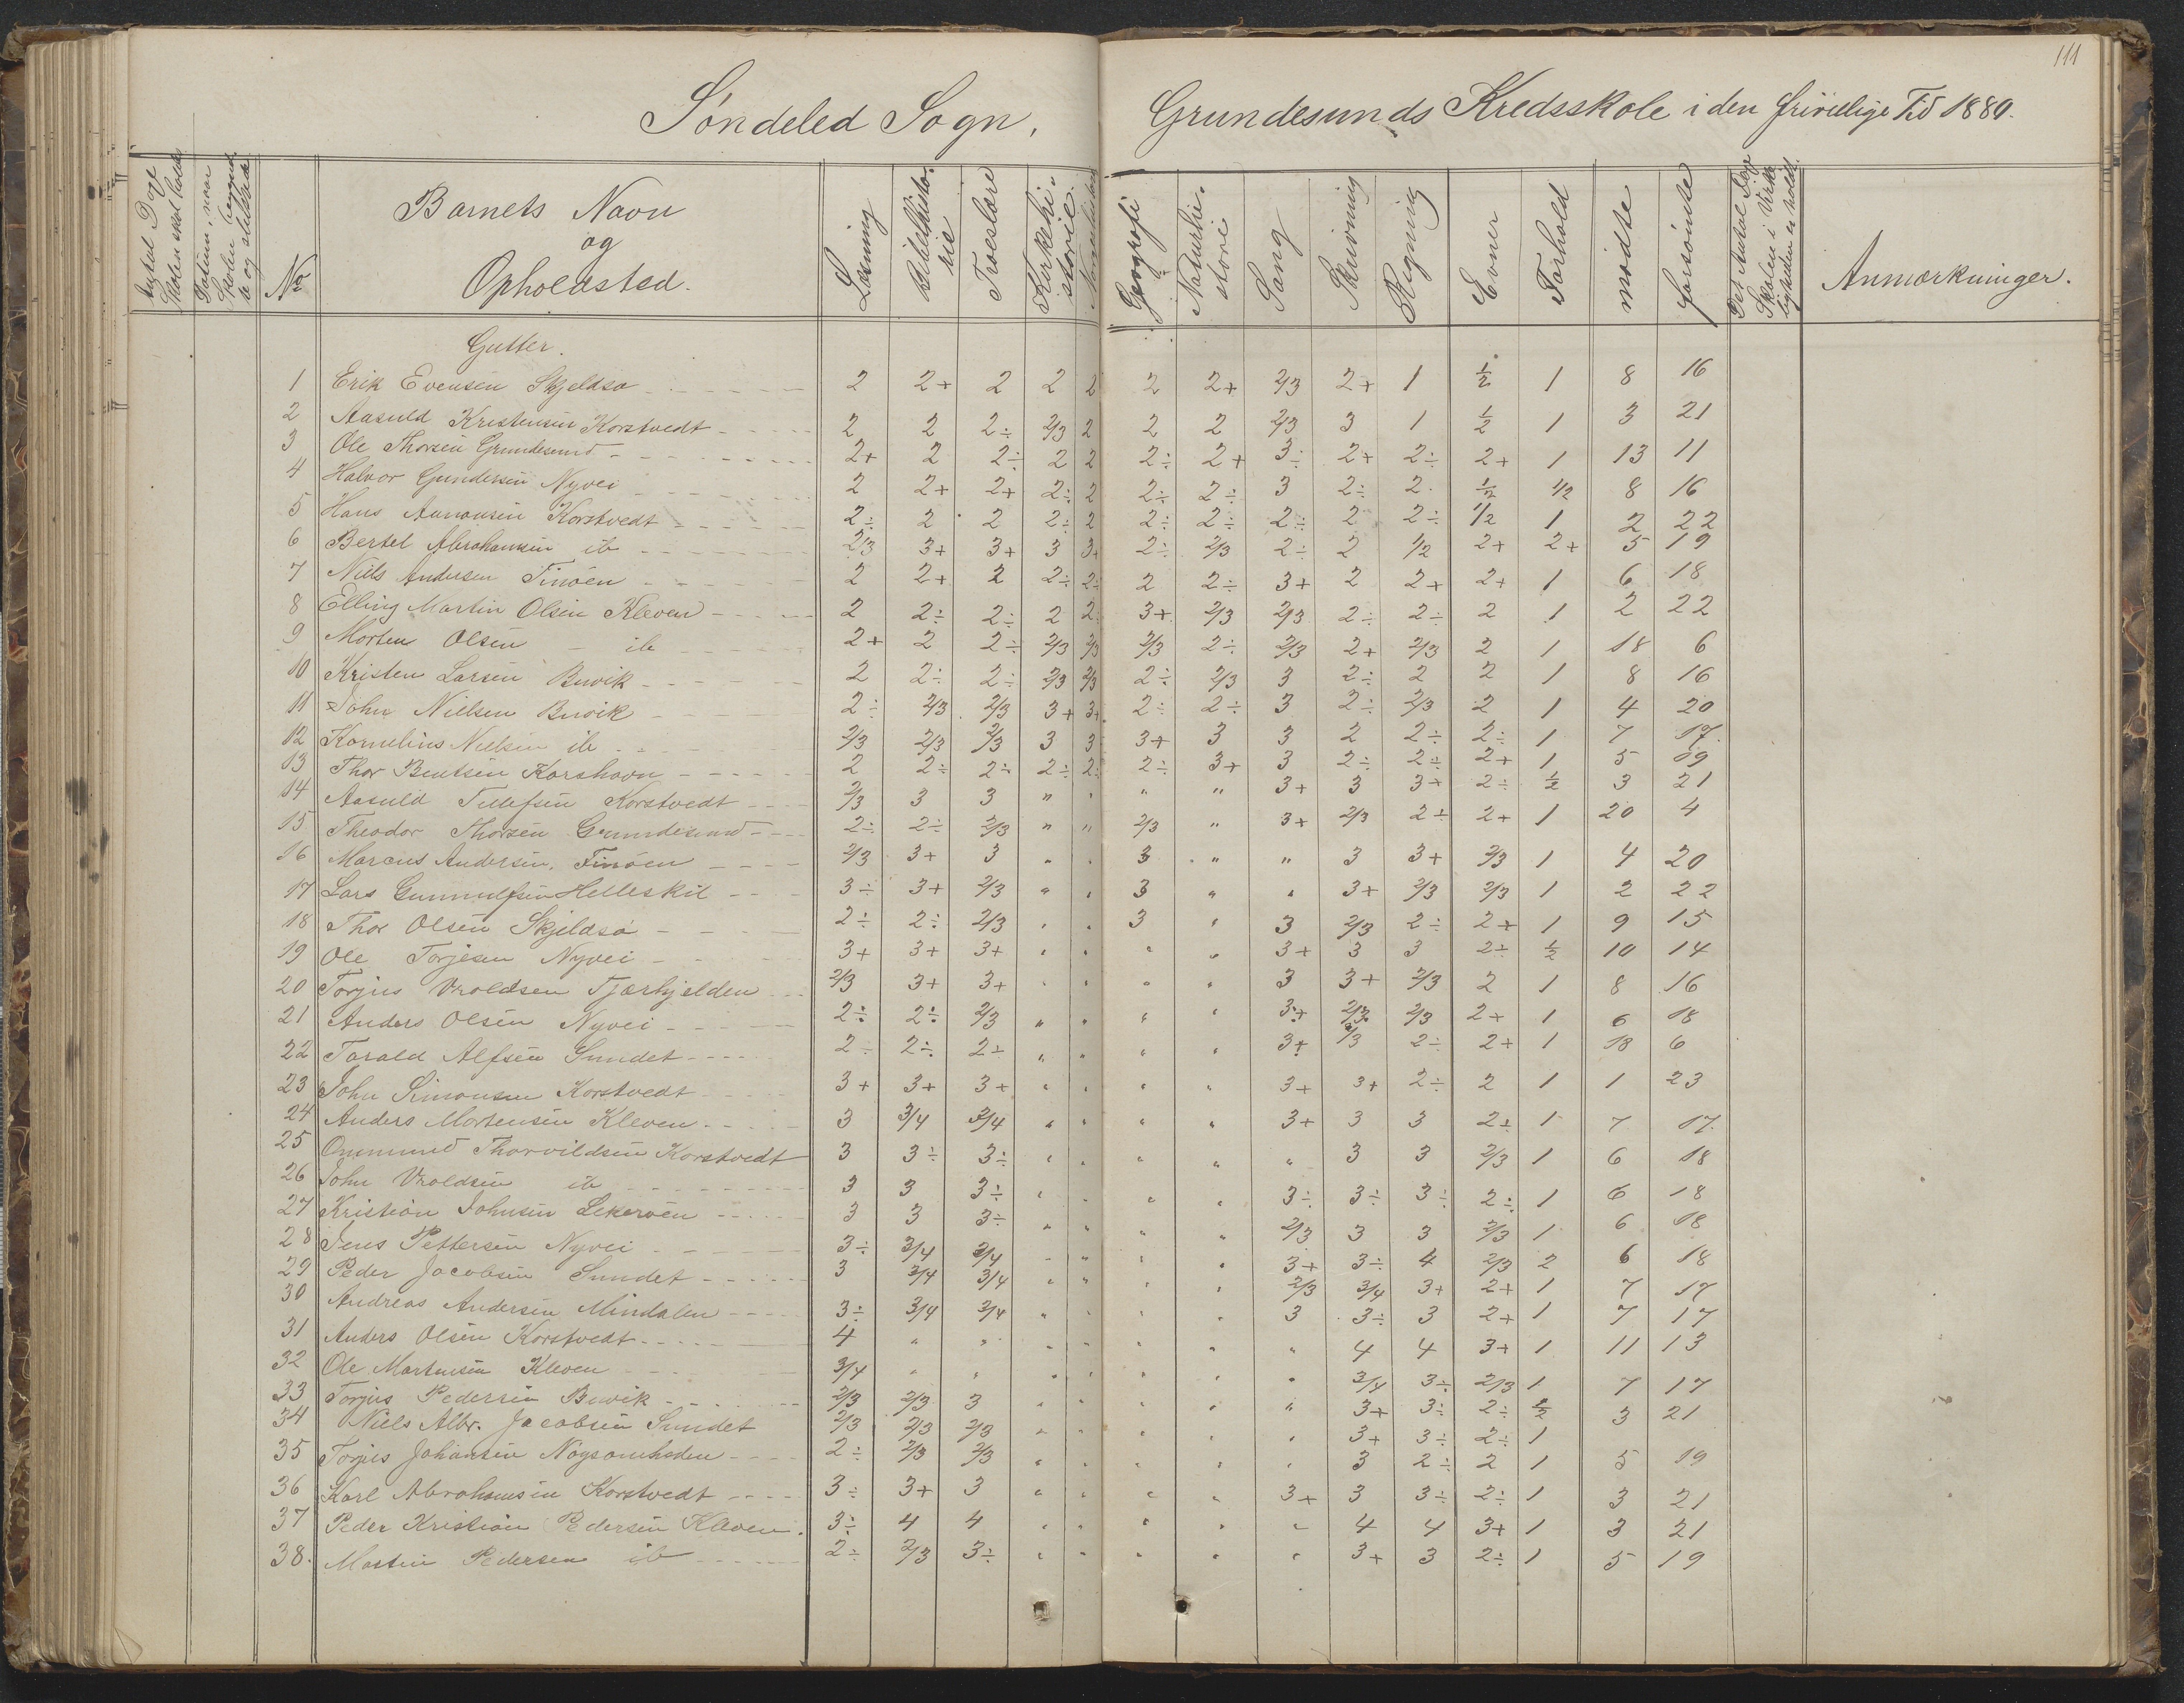 111
Söndeled Sogn, Grundesunds Kredsskole i den frivillige Tid 1880.
Antal Dage Skolen skal holdes
Datum, naar Skolen begynder og slutter
No
Barnets Navn og Opholdsted.
Læsning
Bibelhistorie
Troeslære
Kirkehistorie
Geografi
Naturhistorie
Sang
Skrivning
Regning
Evner
Forhold
mödte
forsömte
Det Antal Dage Skolen i Virkeligheden er holdt.
Anmærkninger.
Gutter.
1 Erik Evensen Skjeldsö 2 2+ 2 2 2 2 2+ 2/3 2+ 1 1/2 1 8 16
2 Aasuld Kristensen Korstvedt 2 2 2÷ 2/3 2 2 2 2/3 3 1 1/2 1 3 21
3 Ole Thorsen Grundesund 2+ 2 2÷ 2 2 2÷ 2+ 3÷ 2+ 2÷ 2+ 1 13 11
4 Halvor Gundersen Nyvei 2 2+ 2+ 2÷ 2 2÷ 2÷ 3 2÷ 2 1/2 1/2 8 16
5 Hans Aanonsen Korstvedt 2÷ 2 2 2÷ 2 2÷ 2÷ 2÷ 2 2÷ 1/2 1 2 22
6 Bertel Abrahamsen ib 2/3 3+ 3+ 3 3+ 2÷ 2/3 2÷ 2 1/2 2+ 2+ 5 19
7 Niels Andersen Finöen 2 2+ 2 2÷ 2÷ 2 2÷ 3+ 2 2+ 2+ 1 6 18
8 Elling Martin Olsen Kleven 2 2÷ 2÷ 2 2÷ 3+ 2/3 2/3 2÷ 2÷ 2 1 2 22
9 Morten Olsen ib 2+ 2 2÷ 2/3 2/3 2/3 2÷ 2/3 2+ 2/3 2 1 18 6
10 Kristen Larsen Buvik 2 2÷ 2÷ 2/3 2/3 2÷ 2/3 3 2÷ 2 2 1 8 16
11 John Nielsen Buvik 2÷ 2/3 2/3 3+ 3+ 2÷ 2÷ 3 2÷ 2/3 2 1 4 20
12 Kornelius Nielsen ib 2/3 2/3 2/3 3 3 3+ 3 3 2 2÷ 2÷ 1 7 17
13 Thor Bentsen Korshavn 2 2÷ 2÷ 2÷ 2÷ 2÷ 3+ 3 2÷ 2÷ 2+ 1 5 19
14 Aasuld Tellefsen Korstvedt 2/3 3 3 " " " " 3+ 3 3+ 2÷ 1/2 3 21
15 Theodor Thorsen Grundesund 2÷ 2÷ 2/3 " " 2/3 " 3+ 2/3 2÷ 2+ 1 20 4
16 Marcus Andersen, Finöen 2/3 3+ 3 " " 3 " " 3 3+ 2/3 1 4 20
17 Lars Gunnulfsen Helleskil 3÷ 3+ 2/3 " " 3 " " 3+ 2/3 2/3 1 2 22
18 Thor Olsen Skjeldsö 2÷ 2÷ 2/3 " " 3 " 3 2/3 2÷ 2+ 1 9 15
19 Ole Torjesen Nyvei 3+ 3+ 3+ " " " " 3+ 3 3 2÷ 1/2 10 14
20 Torjus Vroldsen Tjærhjelden 2/3 3+ 3+ " " " " 3 3+ 2/3 2 1 8 16
21 Anders Olsen Nyvei 2÷ 2÷ 2/3 " " " " 3+ 2/3 2/3 2+ 1 6 18
22 Tarald Alfsen Sundet 2÷ 2÷ 2÷ " " " " 3+ 2/3 2÷ 2+ 1 18 6
23 John Simonsen Korstvedt 3+ 3+ 3+ " " " " 3+ 3+ 2÷ 2 1 1 23
24 Anders Mortensen Kleven 3 3/4 3/4 " " " " 3+ 3 3 2÷ 1 7 17
25 Ommund Thorvildsen Korstvedt 3 3÷ 3÷ " " " " " 3 3 2/3 1 6 18
26 John Vroldsen ib 3 3 3÷ " " " " 3÷ 3÷ 3÷ 2÷ 1 6 18
27 Kristian Johnsen Lekeröen 3 3 3÷ " " " " 2/3 3 3 2/3 1 6 18
28 Jens Pettersen Nyvei 3÷ 3/4 3/4 " " " " 3+ 3÷ 4 2/3 2 6 18
29 Peder Jacobsen Sundet 3 3/4 3/4 " " " " 2/3 3/4 3+ 2+ 1 7 17
30 Andreas Andersen Mindalen 3÷ 3/4 3/4 " " " " 3 3÷ 3 2+ 1 7 17
31 Anders Olsen Korstvedt 4 " " " " " " " 4 4 3+ 1 11 13
32 Ole Martensen Kleven 3/4 " " " " " " " 3/4 3÷ 2/3 1 7 17
33 Torjus Pedersen Buvik 2/3 2/3 3 " " " " " 3+ 3÷ 2÷ 1/2 3 21
34 Niels Albr. Jacobsen Sundet 2/3 2/3 2/3 " " " " " 3+ 3÷ 2÷ 1
35 Torjus Johansen Nöysomheden 2÷ 2/3 2/3 " " " " " 3 2÷ 2 1 5 19
36 Karl Abrahamsen Korstvedt 3÷ 3+ 3 " " " " 3+ 3 3÷ 2÷ 1 3 21
37 Peder Kristian Pedersen Kleven. 3÷ 4 4 " " " " " 4 4 3+ 1 3 21
38. Martin Pedersen ib 2÷ 2/3 3÷ " " " " " 3+ 3 2÷ 1 5 19